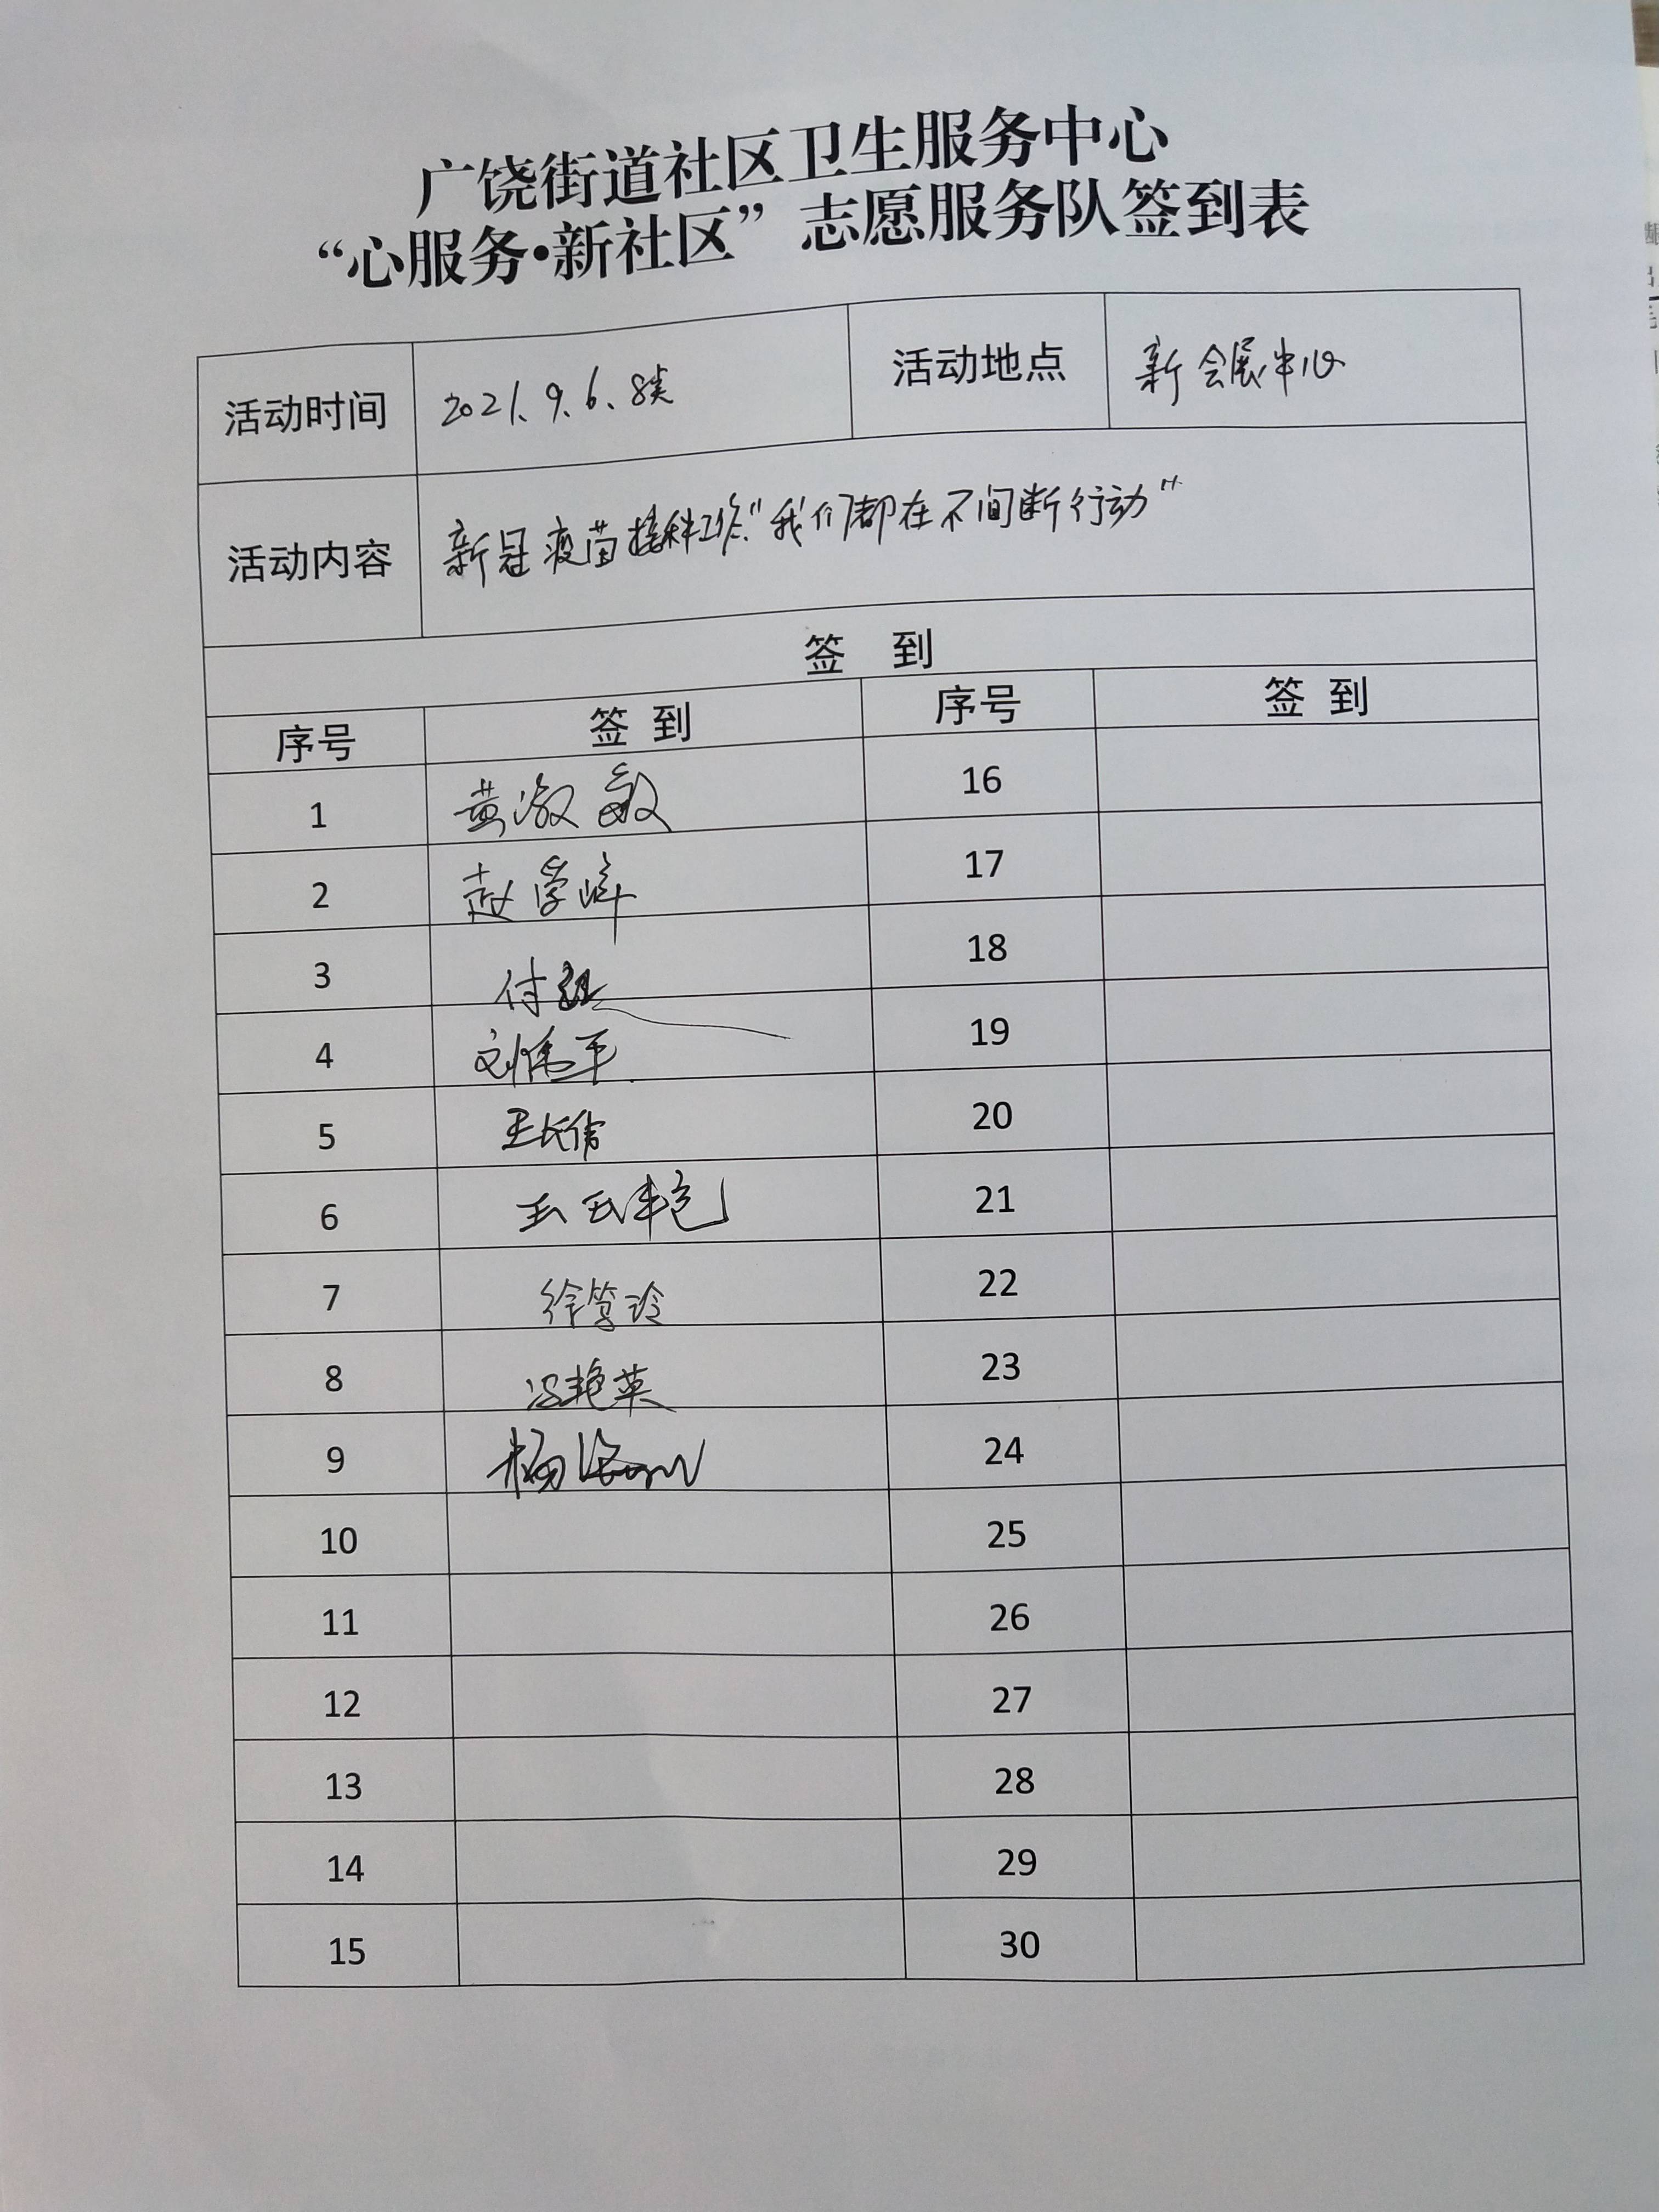 广饶街道社区卫生服务中心
“心服务•新社区”志愿服务队签到表
活动时间 2021.9.6.8点 活动地点 新会展中心
活动内容 新冠疫苗接种工作“我们都在不间断行动”
签 到
序号 签 到 序号 签 到
1 黄淑敏 16
2 赵学峰 17
3 付 18
4 刘伟平 19
5 王 20
6 王 21
7 徐 玲 22
8 冯艳英 23
9 杨 24
10 25
11 26
12 27
13 28
14 29
15 30